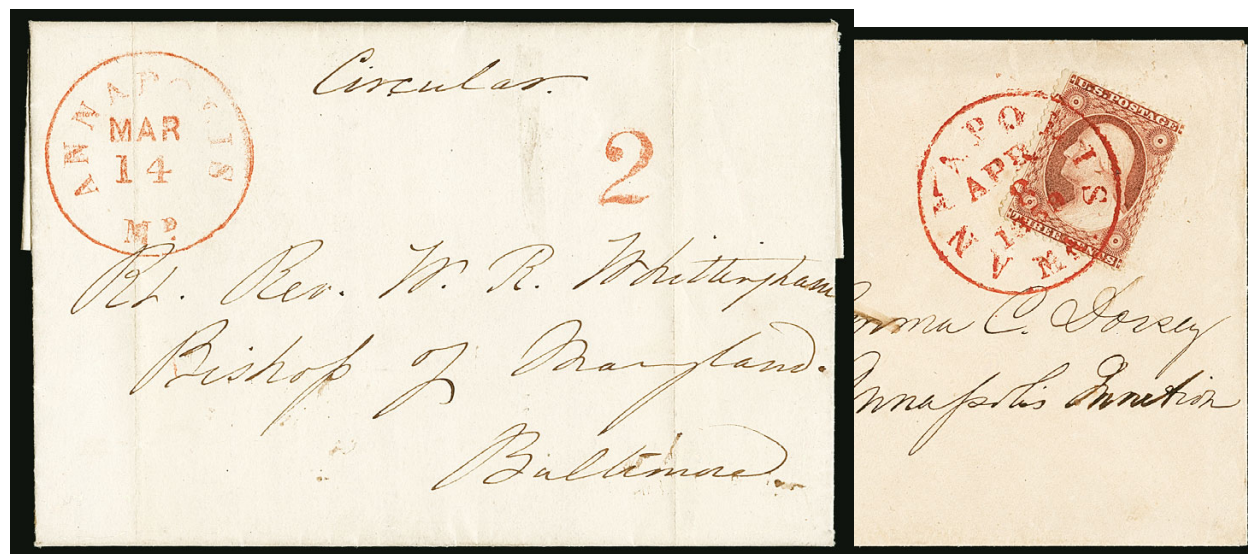 Circular.
ANNAPOLIS
MAR
14
MD.
2
Rt. Rev. W. R. Whittingham
Bishop of Maryland.
Baltimore.
ANNAPOLIS
APR
8
MD.
U.S. POSTAGE
THREE CENTS
Emma C. Dorsey
Annapolis Junction